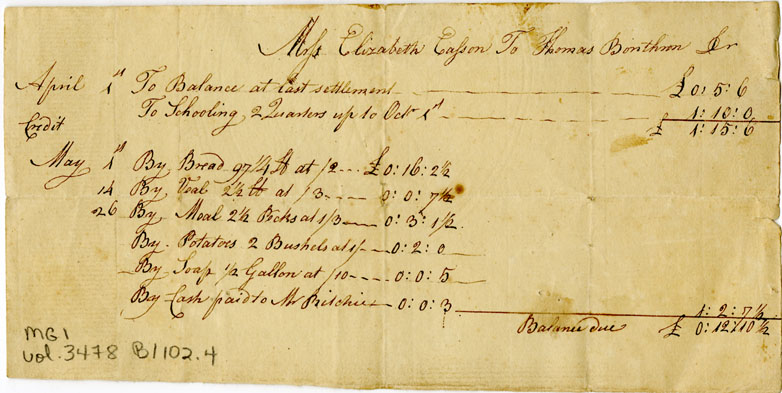 Mrs Elizabeth Easson To Thomas Bonthron Dr
April 1st To Balance at last settlement £ 0: 5: 6
To Schooling 2 Quarters up to Octr 1st 1: 10: 0
£ 1: 15: 6
Credit
May 1st By Bread 97 1/4 lb at /2 £ 0: 16: 2½
14 By Veal 2½ lb at /3 0: 0: 7½
26 By Meal 2½ Pecks at 1/3 0: 3: 1½
By Potatoes 2 Bushels at 1/ 0: 2: 0
By Soap ½ Gallon at /10 0: 0: 5
By Cash paid to Mr Ritchie 0: 0: 3 1: 2: 7½
Balance due £ 0: 12: 10½
MG1
vol. 3478 B1102.4